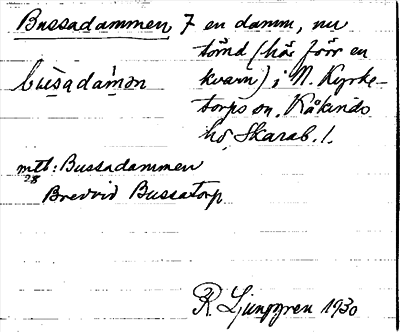 Bussadammen 7 en damm, nu
tömd (här förr en
kvarn) i N. Kyrke-
bu̇sadàmən
torps sn. Kåkinds
hd, Skarab. l.
mtb: Bussadammen
28
Bredvid Bussatorp
R Ljunggren 1930